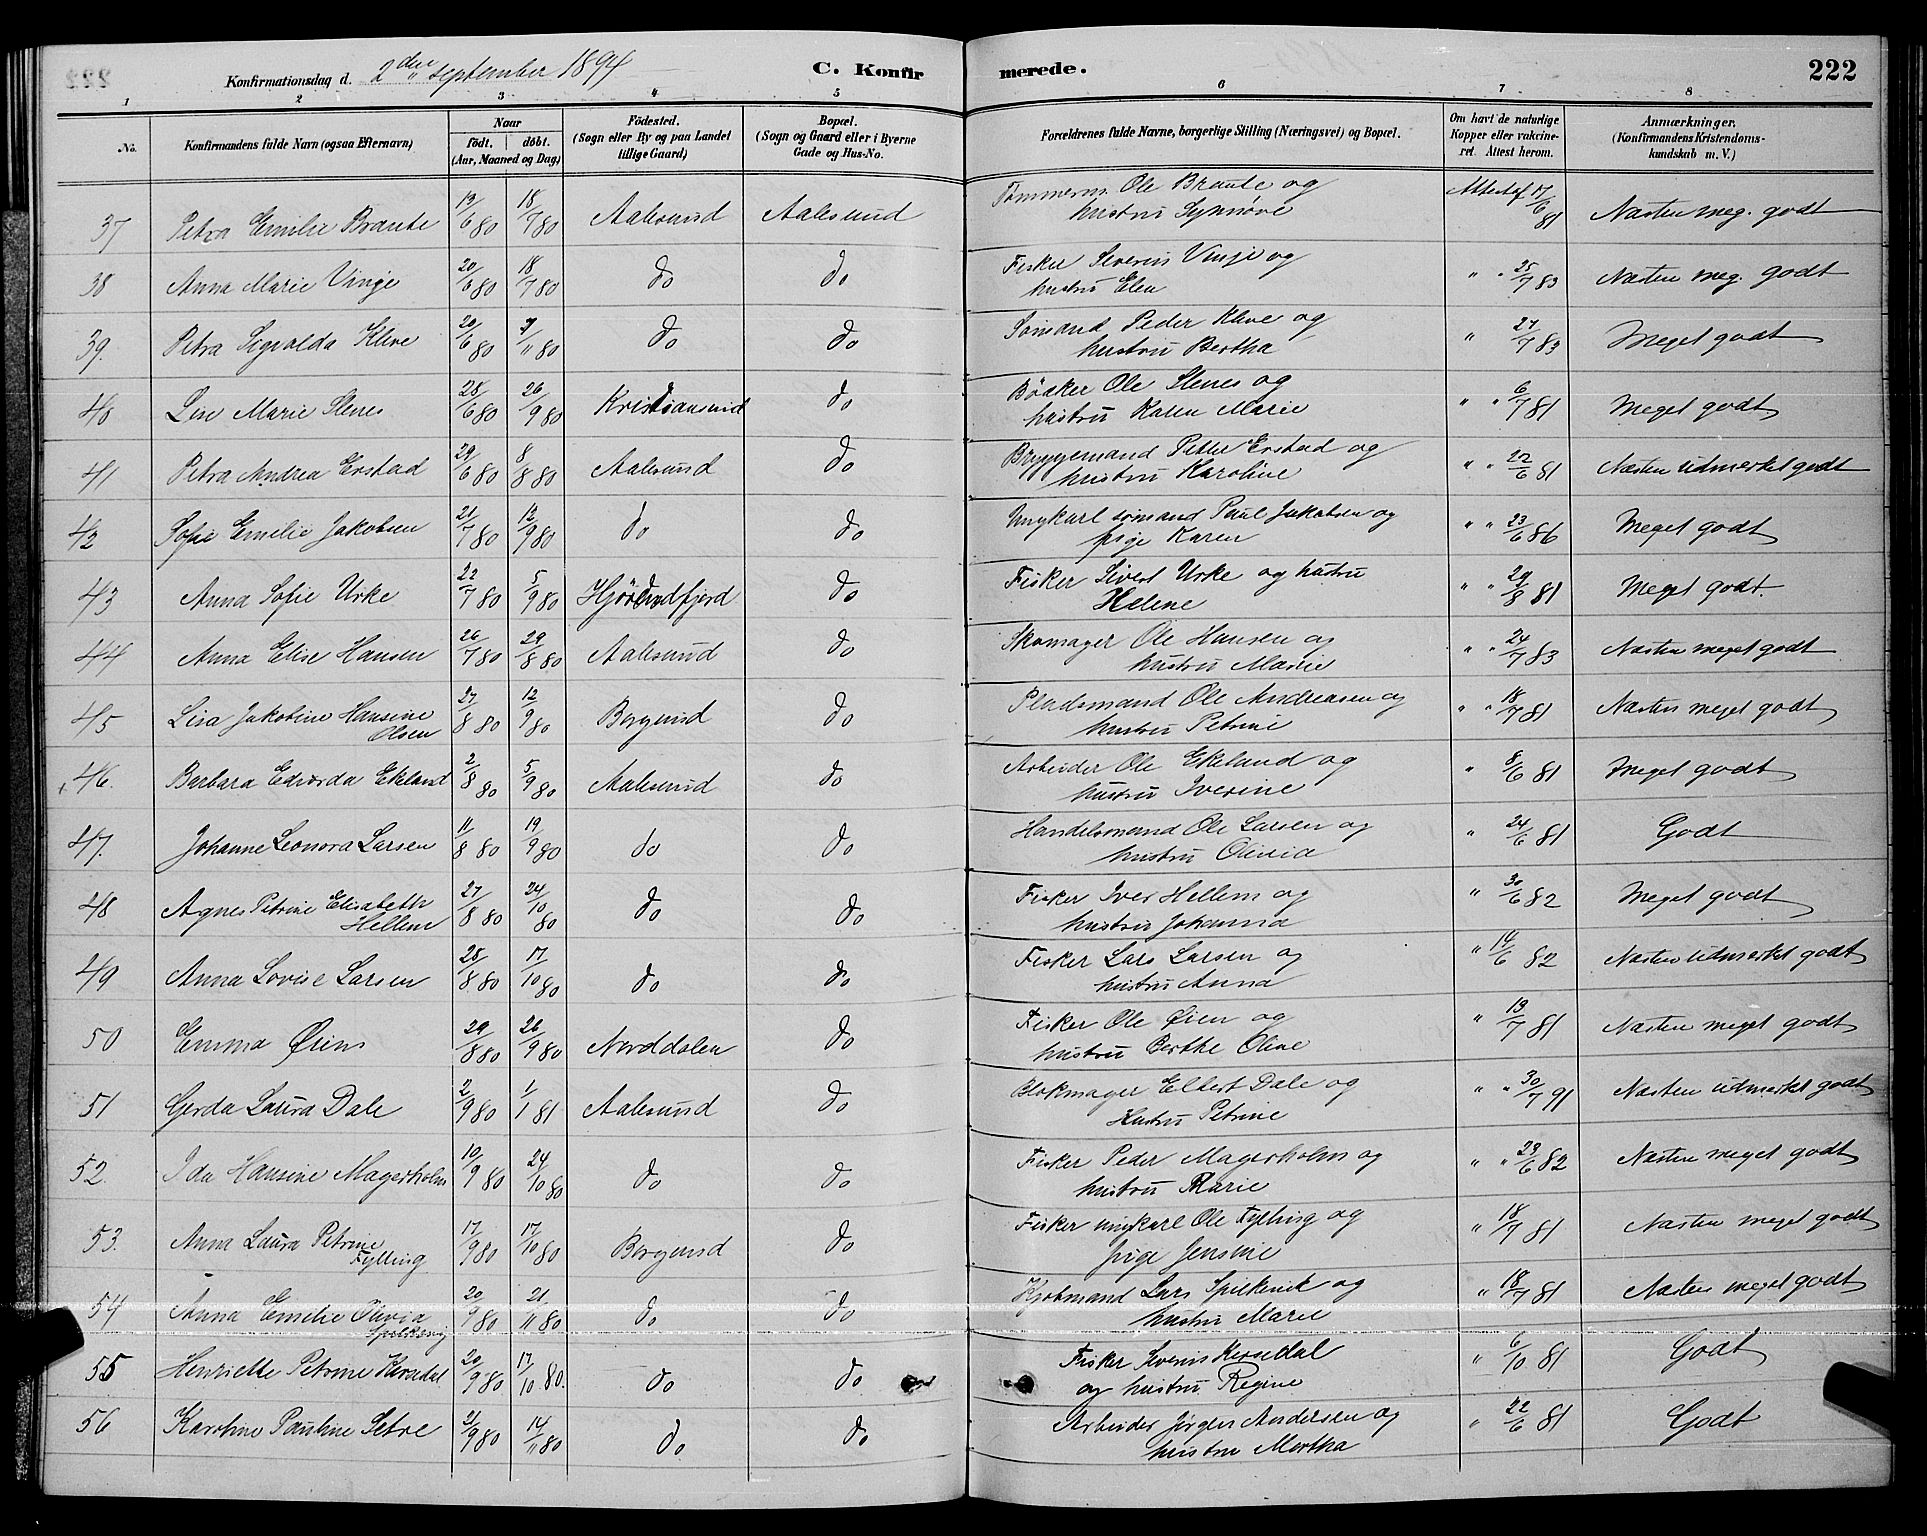 Konfirmationsdag d. 2den September 1894 C. Konfirmerede. 222
1 2 3 4 5 6 7 8
No. | Konfirmandens fulde Navn (ogsaa Efternavn) | Naar født. døbt. (Aar, Maaned og Dag) | Fødested. (Sogn eller By og paa Landet tillige Gaard) | Bopæl. (Sogn og Gaard eller i Byerne Gade og Hus-No. | Forældrenes fulde Navne, borgerlige Stilling (Næringsvei) og Bopæl. | Om havt de naturlige Kopper eller vakcineret. Attest herom. | Anmærkninger. (Konfirmandens Kristendomskundskab m. V.)
37 Petra Emilie Braute 13/6 80 18/7 80 Aalesund Aalesund Tømmerm. Ole Braute og hustru Synnøve Attest af 17/6 81 Næsten meg. godt
38 Anna Marie Vinje 20/6 80 18/7 80 do do Fisker Severin Vinje og hustru Elen " " 25/7 83 Næsten meg. godt
39. Petra Sigvalda Kleve 20/6 80 7/11 80 do do Sømand Peder Kleve og hustru Bertha " 27/7 83 Meget godt
40 Line Marie Stenes 28/6 80 26/9 80 Kristiansund do Bødker Ole Stenes og hustru Karen Marie " " 6/7 81 Meget godt
41 Petra Andrea Erstad 29/6 80 8/8 80 Aalesund do Bryggemand Petter Erstad og hustru Karoline " " 22/6 81 Næsten udmerket godt
42 Sofie Emelie Jakobsen 21/7 80 12/9 80 do do Ungkarl sømand Paul Jakobsen og pige Karen " " 23/6 86 Meget godt
43 Anna Sofie Urke 22/7 80 5/9 80 Hjørundfjord do Fisker Sivert Urke og hustru Helene " " 29/8 81 Meget godt.
44 Anna Elise Hansen 26/7 80 29/8 80 Aalesund do Skomager Ole Hansen og hustru Marie " " 24/7 83 Næsten meget godt
45 Lisa Jakobine Hansine Olsen 27/8 80 12/9 80 Borgund do Pladsmand Ole Andreasen og hustru Petrine " " 18/7 81 Næsten meget godt
46. Barbara Edvarda Ekeland 2/8 80 5/9 80 Aalesund do Arbeider Ole Ekeland og hustru Iverine " 8/6 81 Meget godt
47. Johanne Leonora Larsen 11/8 80 19/9 80 do do Handelsmand Ole Larsen og hustru Olivia " 24/6 81 Godt
48 Agnes Petrine Elisabeth Hellem 27/8 80 24/10 80 do do Fisker Iver Hellem og hustru Johanna " 30/6 82 Meget godt
49 Anna Lovise Larsen 28/8 80 17/10 80 do do Fisker Lars Larsen og hustru Anna " 14/6 82 Næsten udmerket godt
50 Emma Øien 29/8 80 26/9 80 Norddalen do Fisker Ole Øien og hustru Berthe Oline " 19/7 81 Næsten meget godt
51 Gerda Laura Dale 2/9 80 1/1 81 Aalesund do Blokmager Ellert Dale og Hustru Petrine " " 30/7 91 Næsten udmerket godt
52. Ida Hansine Magerholm 10/9 80 24/10 80 do do Fisker Peder Magerholm og hustru Marie " " 29/6 82 Næsten meget godt
53. Anna Laura Petrine Fylling 17/9 80 17/10 80 Borgund do Fisker ungkarl Ole Fylling og pige Jensine " 18/7 81 Næsten meget godt
54 Anna Emelie Olivia Spilkevig 20/9 80 21/11 80 do do Kjøbmand Lars Spilkevik og hustru Marie " 18/7 81 Næsten meget godt
55 Henriette Petrine Korsedal 20/9 80 17/10 80. do do Fisker Severin Korsedal og hustru Regine " 6/10 81 Godt
56 Karoline Pauline Setre 21/9 80 14/11 80 do do Arbeider Jørgen Andersen og hustru Martha " 22/6 81 Godt